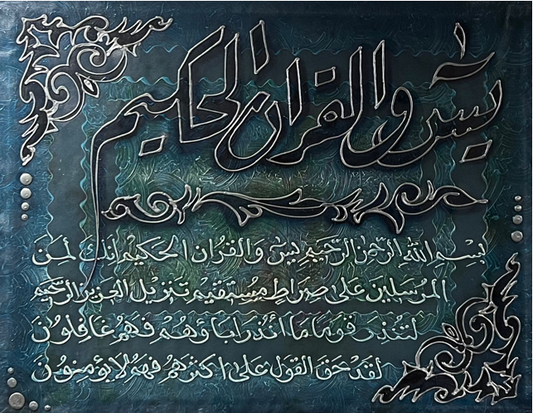 يس والقران الحكيم
بسم الله الرحمن الرحيم يس والقران الحكيم انك لمن
المرسلين على صراط مستقيم تنزيل العزيز الرحيم
لتنذر قوما ما انذر اباوهم فهم غافلون
لقد حق القول على اكثرهم فهم لا يؤمنون